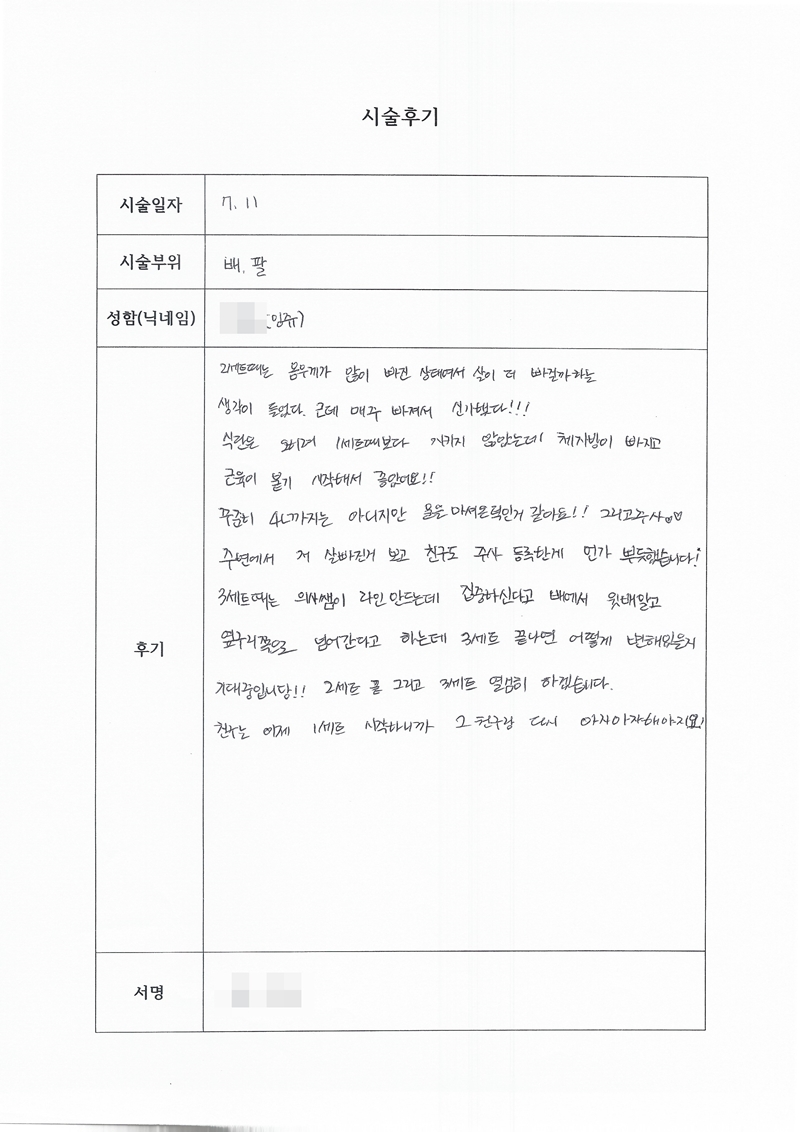 시술후기
시술일자 7. 11
시술부위 배, 팔
성함(닉네임) 임쥬)
후기
2세트때는 몸무게가 많이 빠진 상태여서 살이 더 빠질까하는
생각이 들었다. 근데 매주 빠져서 신기했다!!!
식단은 오히려 1세트때보다 지키지 않았는데 체지방이 빠지고
근육이 붙기 시작해서 좋았어요!!
꾸준히 4L까지는 아니지만 물을 마셔온덕인거 같아요!! 그리고주사♡♡
주변에서 저 살빠진거 보고 친구도 주사 등록한게 먼가 뿌듯했습니다!
3세트때는 의사쌤이 라인만드는데 집중하신다고 배에서 윗배말고
옆구리쪽으로 넘어간다고 하는데 3세트 끝나면 어떻게 변해있을지
기대중입니당!! 2세트 끝 그리고 3세트 열심히 하겠습니다.
친구는 이제 1세트 시작하니까 그 친구랑 다시 아자아쟈해야지요!
서명